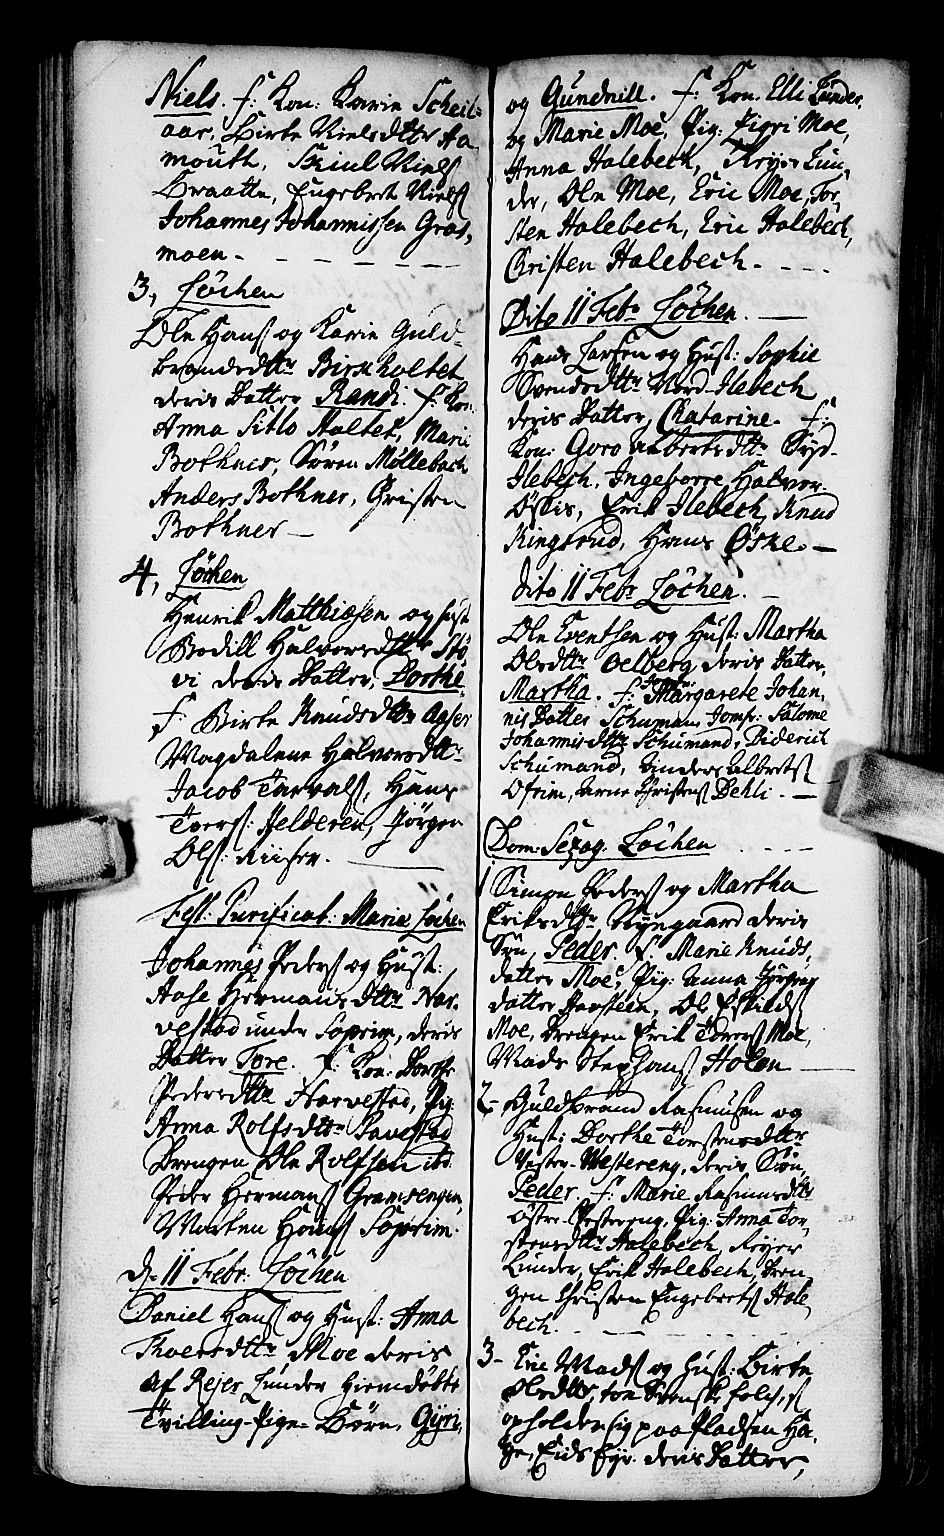 Niels. f: Kon: Karie Scheil-
aar, Birte Nielsdttr Aa-
mouth, Niels
Braatte, Engebret Niels
Johannes Johannissen Gras,
moen.
3, Löchen
Ole Hans og Karie Guld-
brandsdttr Birkholtet
deris Datter Randi. f: Kon:
Anna Sitlo Haltet, Marie
Bothner, Sören Möllebach
Anders Bothner, Christen
Bothner
4, Löchen
Henrik Matthiesen og hust
Bodill Halvorsdttr Stö
vi deris Datter, Dorthe.
f: Birte Knudsdttr
Magdalene Halvorsdttr
Jacob Hans
Toers: Helderen, Jörgen
Ols: Riisen.
Fest: Purificat: Mariæ Löchen
Johannes Peders og Hust:
Aase Hermansdttr Nar-
vestad under Soprim, deris
Datter Tore. f: Kon: Dorthe
Pedersdttr Harvestad, Pig
Anna Rolfsdttr
Drengen Ole Rolfsen ibd
Peder Hermans Gramsengen
Morten Hans Soprim.
d. 11 Febr: Löchen
Daniel Hans og Hust: Anna
Thoersdttr Moe deris
af Rejer Lunder hiemdöbte
Tvilling-Pige-Börn, Gyri,
og Gundnill. f: Kon. Elli Lunder,
og Marie Moe, Pig: Pigri Moe,
Anna Halebech, Rejer Lun-
der, Ole Moe, Eric Moe, Tor-
sten Halebech, Eric Halebech,
Christen Halebech.
Dito 11 Febr Löchen.
Hans Larsen og Hust: Sophie
Svendsdttr Nord-Ilebech
deris Datter Chatarine. f:
Kon: Goro Albertsdttr Syd-
Ilebech, Ingeborre Halvor
Erik Ilebech, Knud
Ringerud, Hans Öske.
dito 11 Febr Löchen.
Ole Eventsen og Hust: Martha
Olsdttr Oelberg deris Datter
Martha. f: Jomfr: Margarete Johan-
nis Datter Schumann Jomfr: Salome
Johannisdttr Schumand, Diderich
Schumand, Anders Alberts
Ofrim, Arne Christens Dehli.
Dom: Sexag. Löchen
1 Simon Peders og Martha
Eriksdttr Nyegaard deris
Sön, Peder. f: Marie Knuds,
datter Moe, Pig: Anna Jörgens
datter Ole Eskilds
Moe, Drengen Erik Toers Moe,
Mads Stephans Holen
2- Guldbrand Rasmusen og
Hust: Dorthe Torstensdttr
Vester-Westereng, deris Sön,
Peder. f: Marie Rasmusdttr
Östre-Vestereng, Pig: Anna Tor-
stensdttr Halebech, Rejer
Lunder, Erik Halebech, Dren-
gen Christen Engebrets Hale,
bech.
3- Eric Mads og Hust: Birte
Olsdttr, toe Svenske folch, s
opholder sig paa Pladsen Ha-
deris Datter,